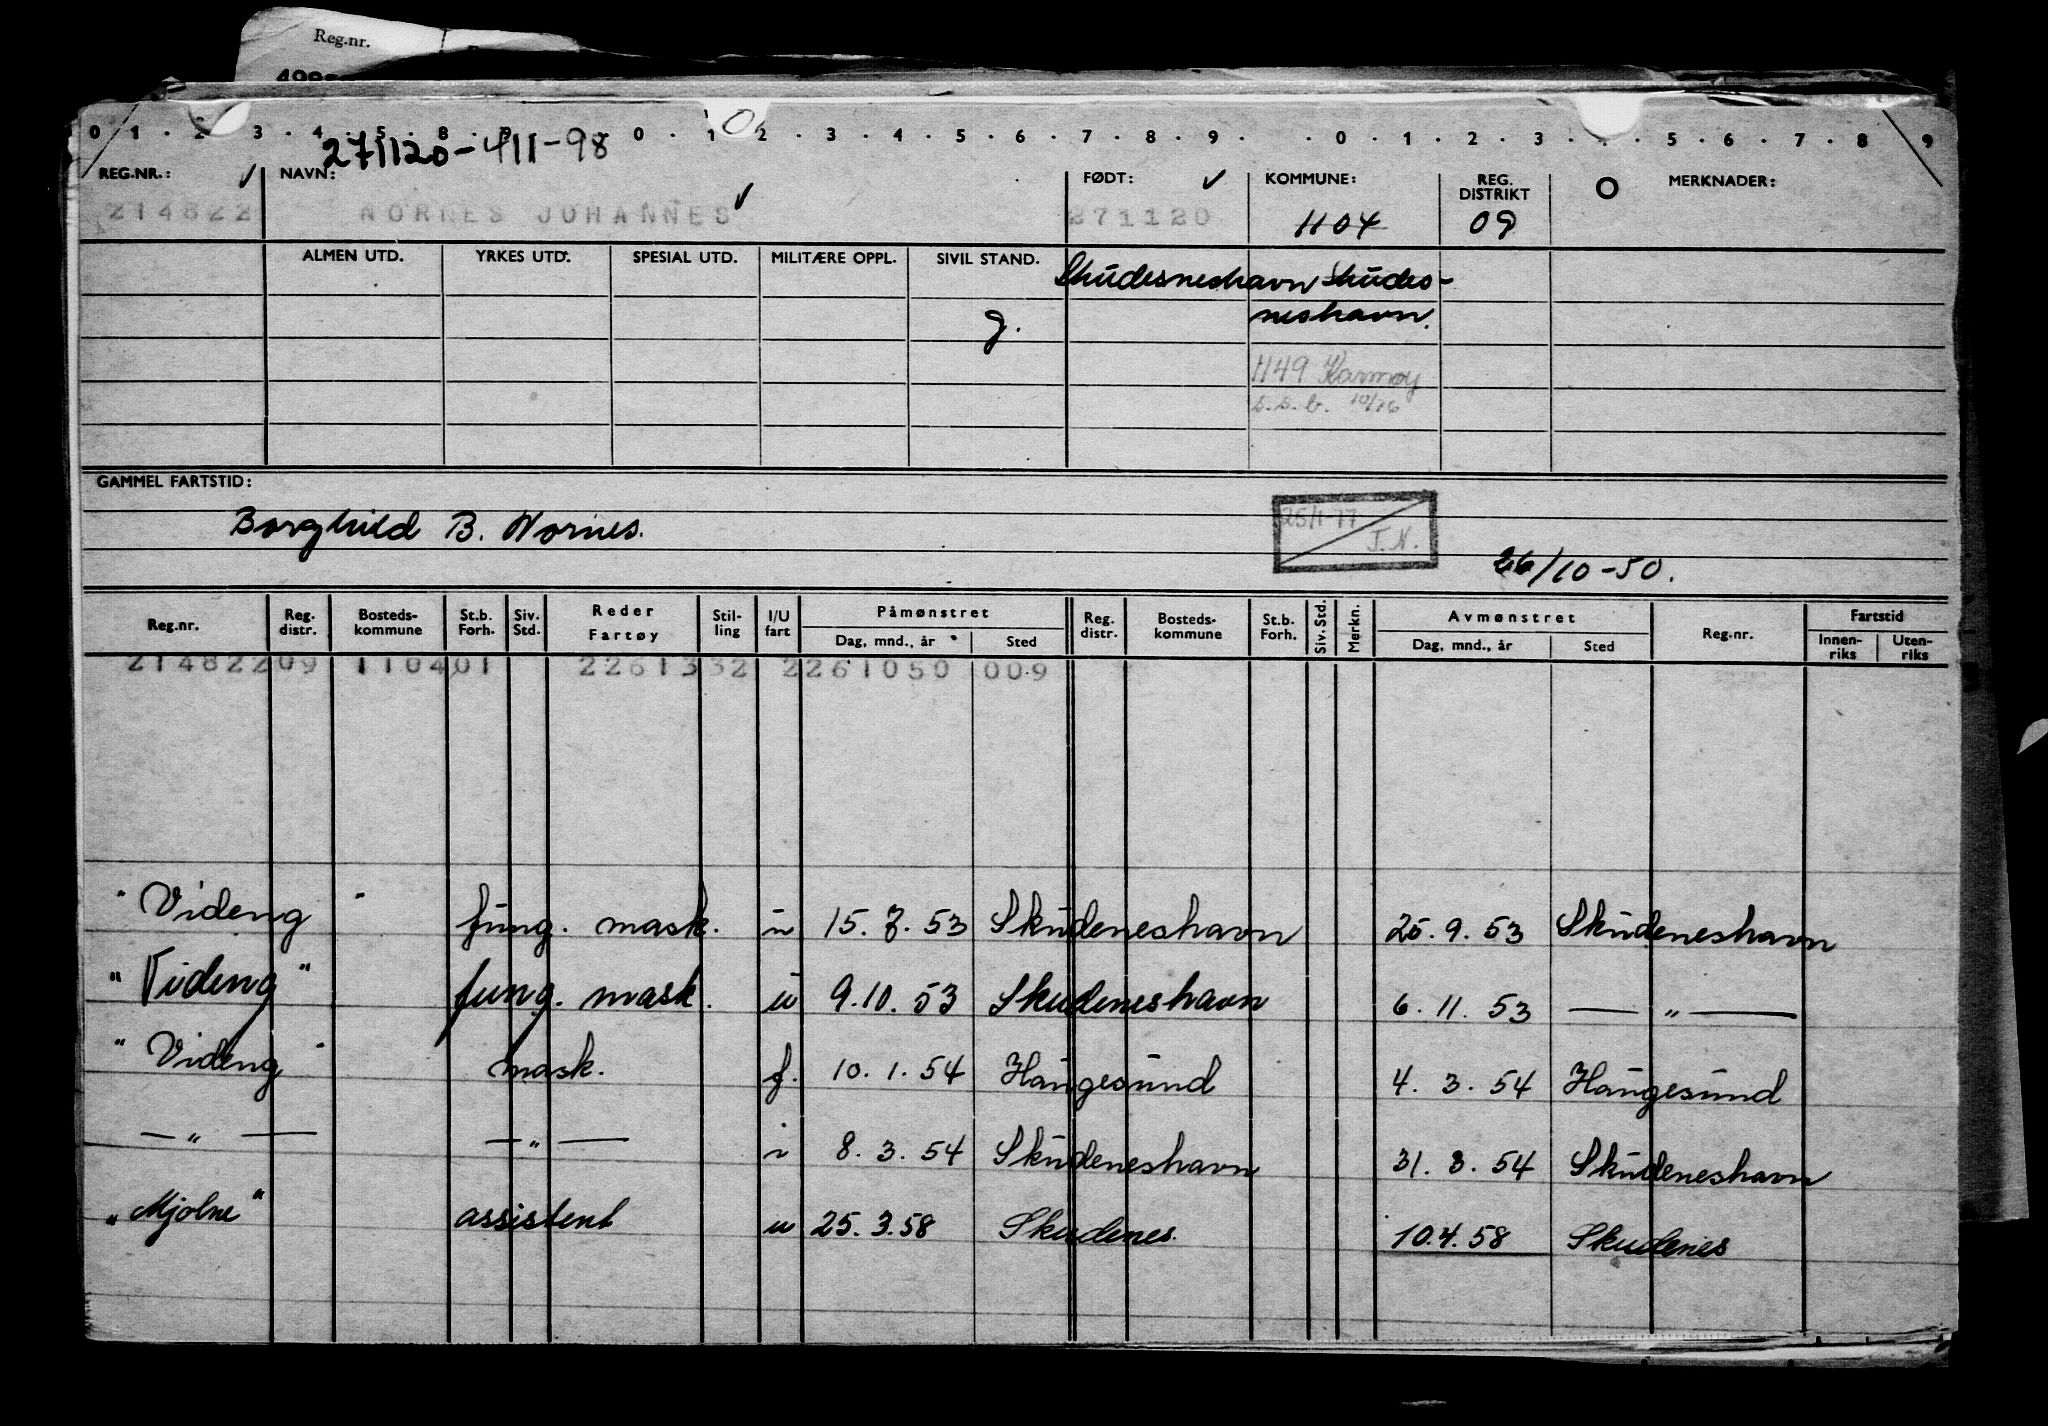 Reg.nr.
0 1 . 2 . 3 . 4 . 5 . 8 . 9 0 . 1 2 . 3 . 4 . 5 . 6 . 7 . 8 . 9 . . 0 . 1 . 2 . 3 . . 5 . 6 . 7 . 8 9
271120-411-98
REG.NR.: NAVN: FØDT: KOMMUNE: REG. DISTRIKT MERKNADER:
214822 NORNES JOHANNES 271120 1104 09
ALMEN UTD. YRKES UTD. SPESIAL UTD. MILITÆRE OPPL. SIVIL STAND.
Skudesneshavn Skudes-
neshavn.
g.
1149 Karmøy
s.s.b. 10/76
GAMMEL FARTSTID:
Borghild B. Nornes.
25/1-77
J.N.
26/10-50.
Reg.nr. Reg. distr. Bosteds-kommune St.b. Forh. Siv. Std. Reder Fartøy Stil-ling I/U fart Påmønstret Dag, mnd., år Sted Reg. distr. Bosteds-kommune St.b. Forh. Siv. Std. Merkn. Avmønstret Dag, mnd., år Sted Reg.nr. Fartstid Innen-riks Uten-riks
21482209 110401 2261332 2261050 009
"Videng" fung. mask. i 15.7.53 Skudeneshavn 25.9.53 Skudeneshavn
"Videng" fung. mask. u 9.10.53 Skudeneshavn 6.11.53 — " —
"Videng" mask. f. 10.1.54 Haugesund 4.3.54 Haugesund
— " — — " — i 8.3.54 Skudeneshavn 31.3.54 Skudeneshavn
"Mjolne" assistent u 25.3.58 Skudenes. 10.4.58 Skudenes